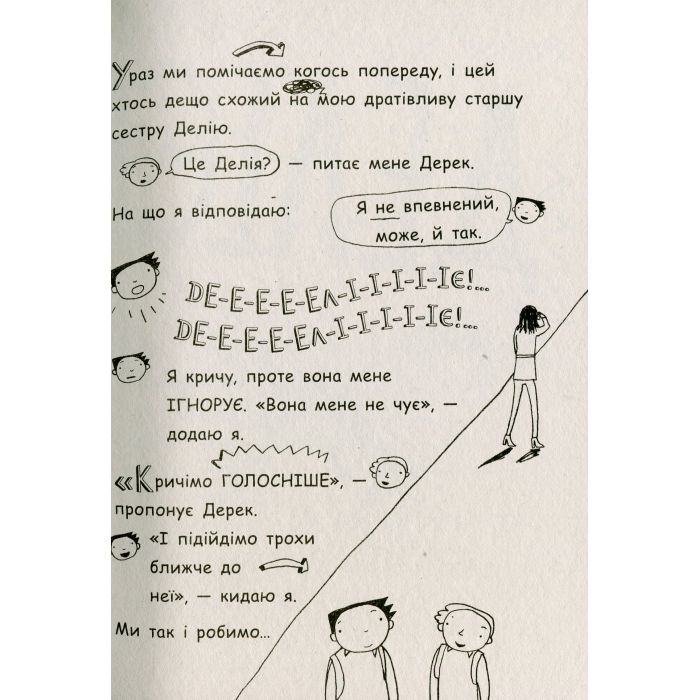 Ураз ми помічаємо когось попереду, і цей
хтось дещо схожий на мою дратівливу старшу
сестру Делію.
Це Делія? — питає мене Дерек.
На що я відповідаю:
Я не впевнений,
може, й так.
DE-Е-Е-Е-Ел-І-І-І-І-ІЄ!...
DE-Е-Е-Е-Ел-І-І-І-І-ІЄ!...
Я кричу, проте вона мене
ІГНОРУЄ. «Вона мене не чує», —
додаю я.
«Кричімо ГОЛОСНІШЕ», —
пропонує Дерек.
«І підійдімо трохи
ближче до
неї», — кидаю я.
Ми так і робимо...